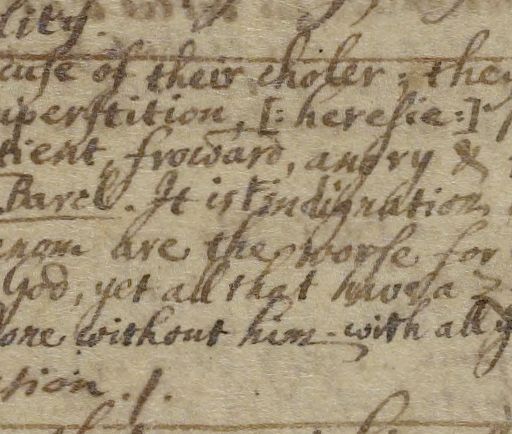 lity.
cause of their choler; they
uperstition, [: heresie :]
tient, froward, angry &
Barcl. It is indignation
enom are the worse for
God, yet all that
lone without him. with all
tion. /.